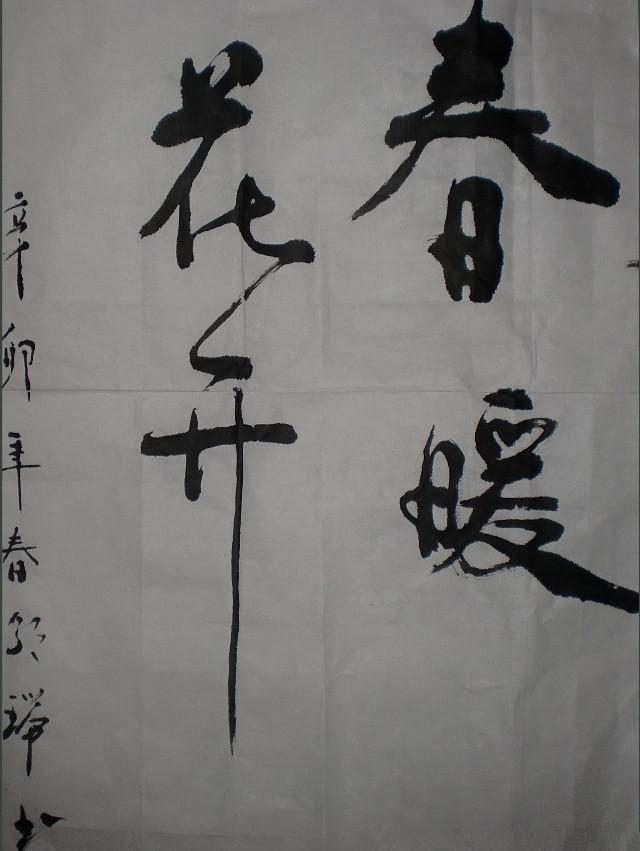 春暖
花开
辛卯年春
瑞书